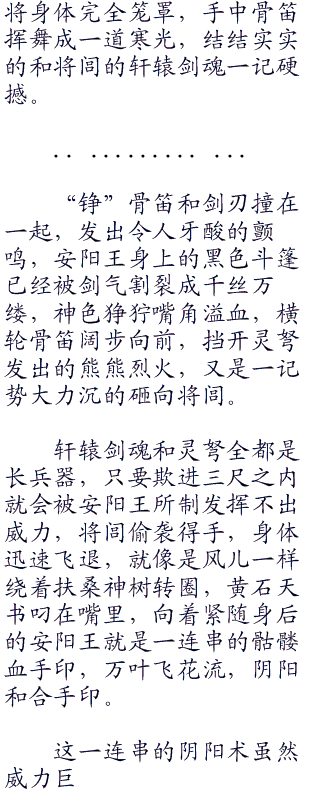 将身体完全笼罩，手中骨笛
挥舞成一道寒光，结结实实
的和将闾的轩辕剑魂一记硬
撼。
.. ......... ...
“铮”骨笛和剑刃撞在
一起，发出令人牙酸的颤
鸣，安阳王身上的黑色斗篷
已经被剑气割裂成千丝万
缕，神色狰狞嘴角溢血，横
轮骨笛阔步向前，挡开灵弩
发出的熊熊烈火，又是一记
势大力沉的砸向将闾。
轩辕剑魂和灵弩全都是
长兵器，只要欺进三尺之内
就会被安阳王所制发挥不出
威力，将闾偷袭得手，身体
迅速飞退，就像是风儿一样
绕着扶桑神树转圈，黄石天
书叼在嘴里，向着紧随身后
的安阳王就是一连串的骷髅
血手印，万叶飞花流，阴阳
和合手印。
这一连串的阴阳术虽然
威力巨